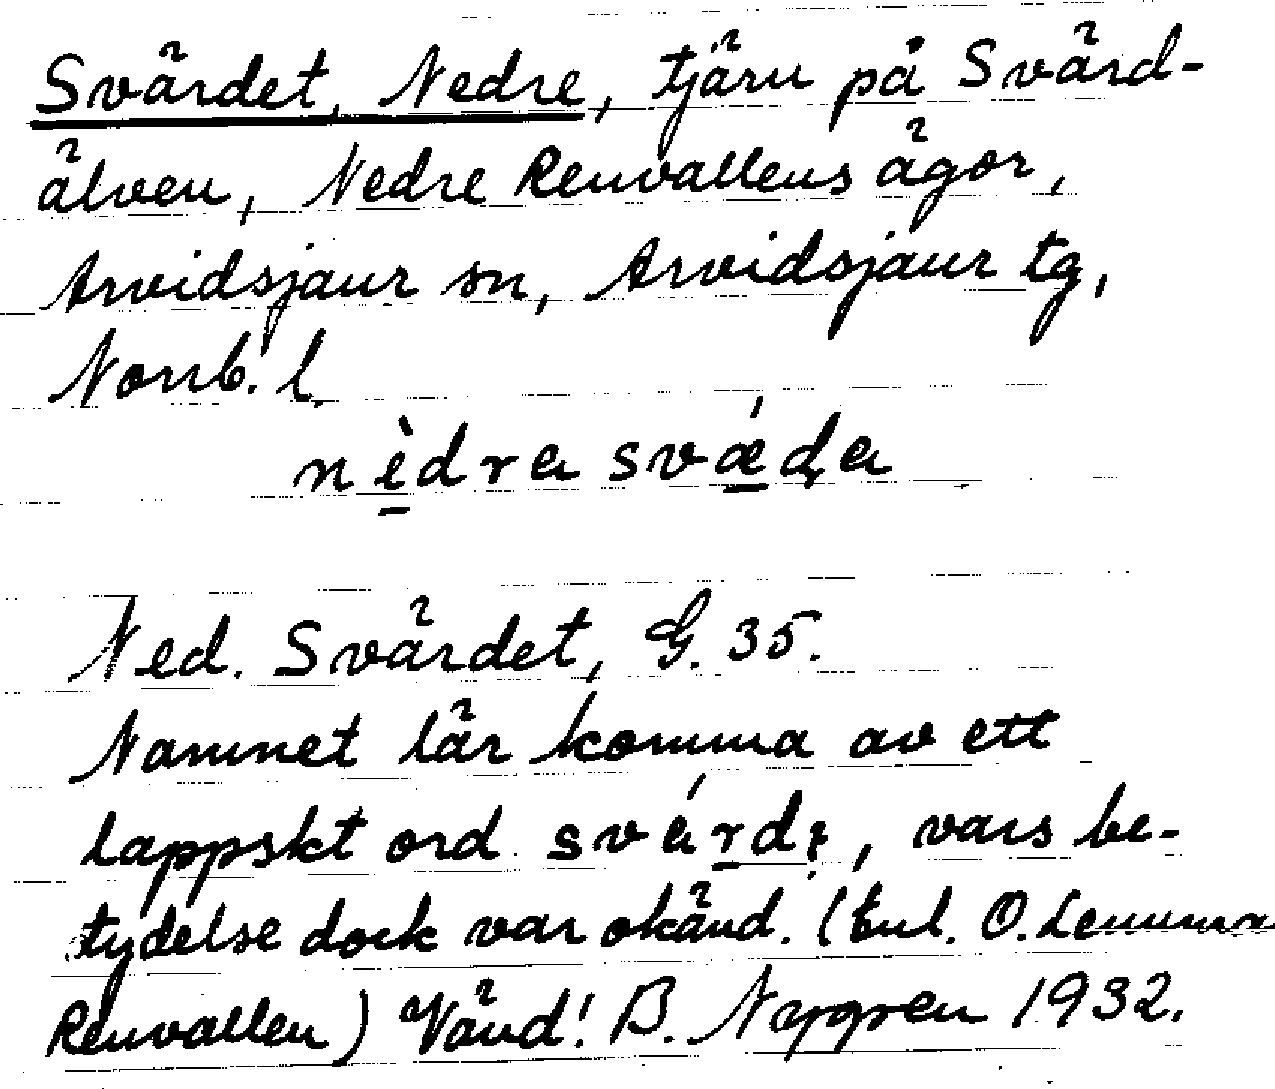 Svärdet, Nedre, tjärn på Svärd-
älven, Nedre Renvallens ägor,
Arvidsjaur sn, Arvidsjaur tg,
Norrb. l.
nèdra svǽḍa
Ned. Svärdet, G. 35.
Namnet lär komma av ett
lappskt ord , vars be-
tydelse dock var okänd. (Enl. O. Lemma
Renvallen) Vänd! B. Nygren 1932.